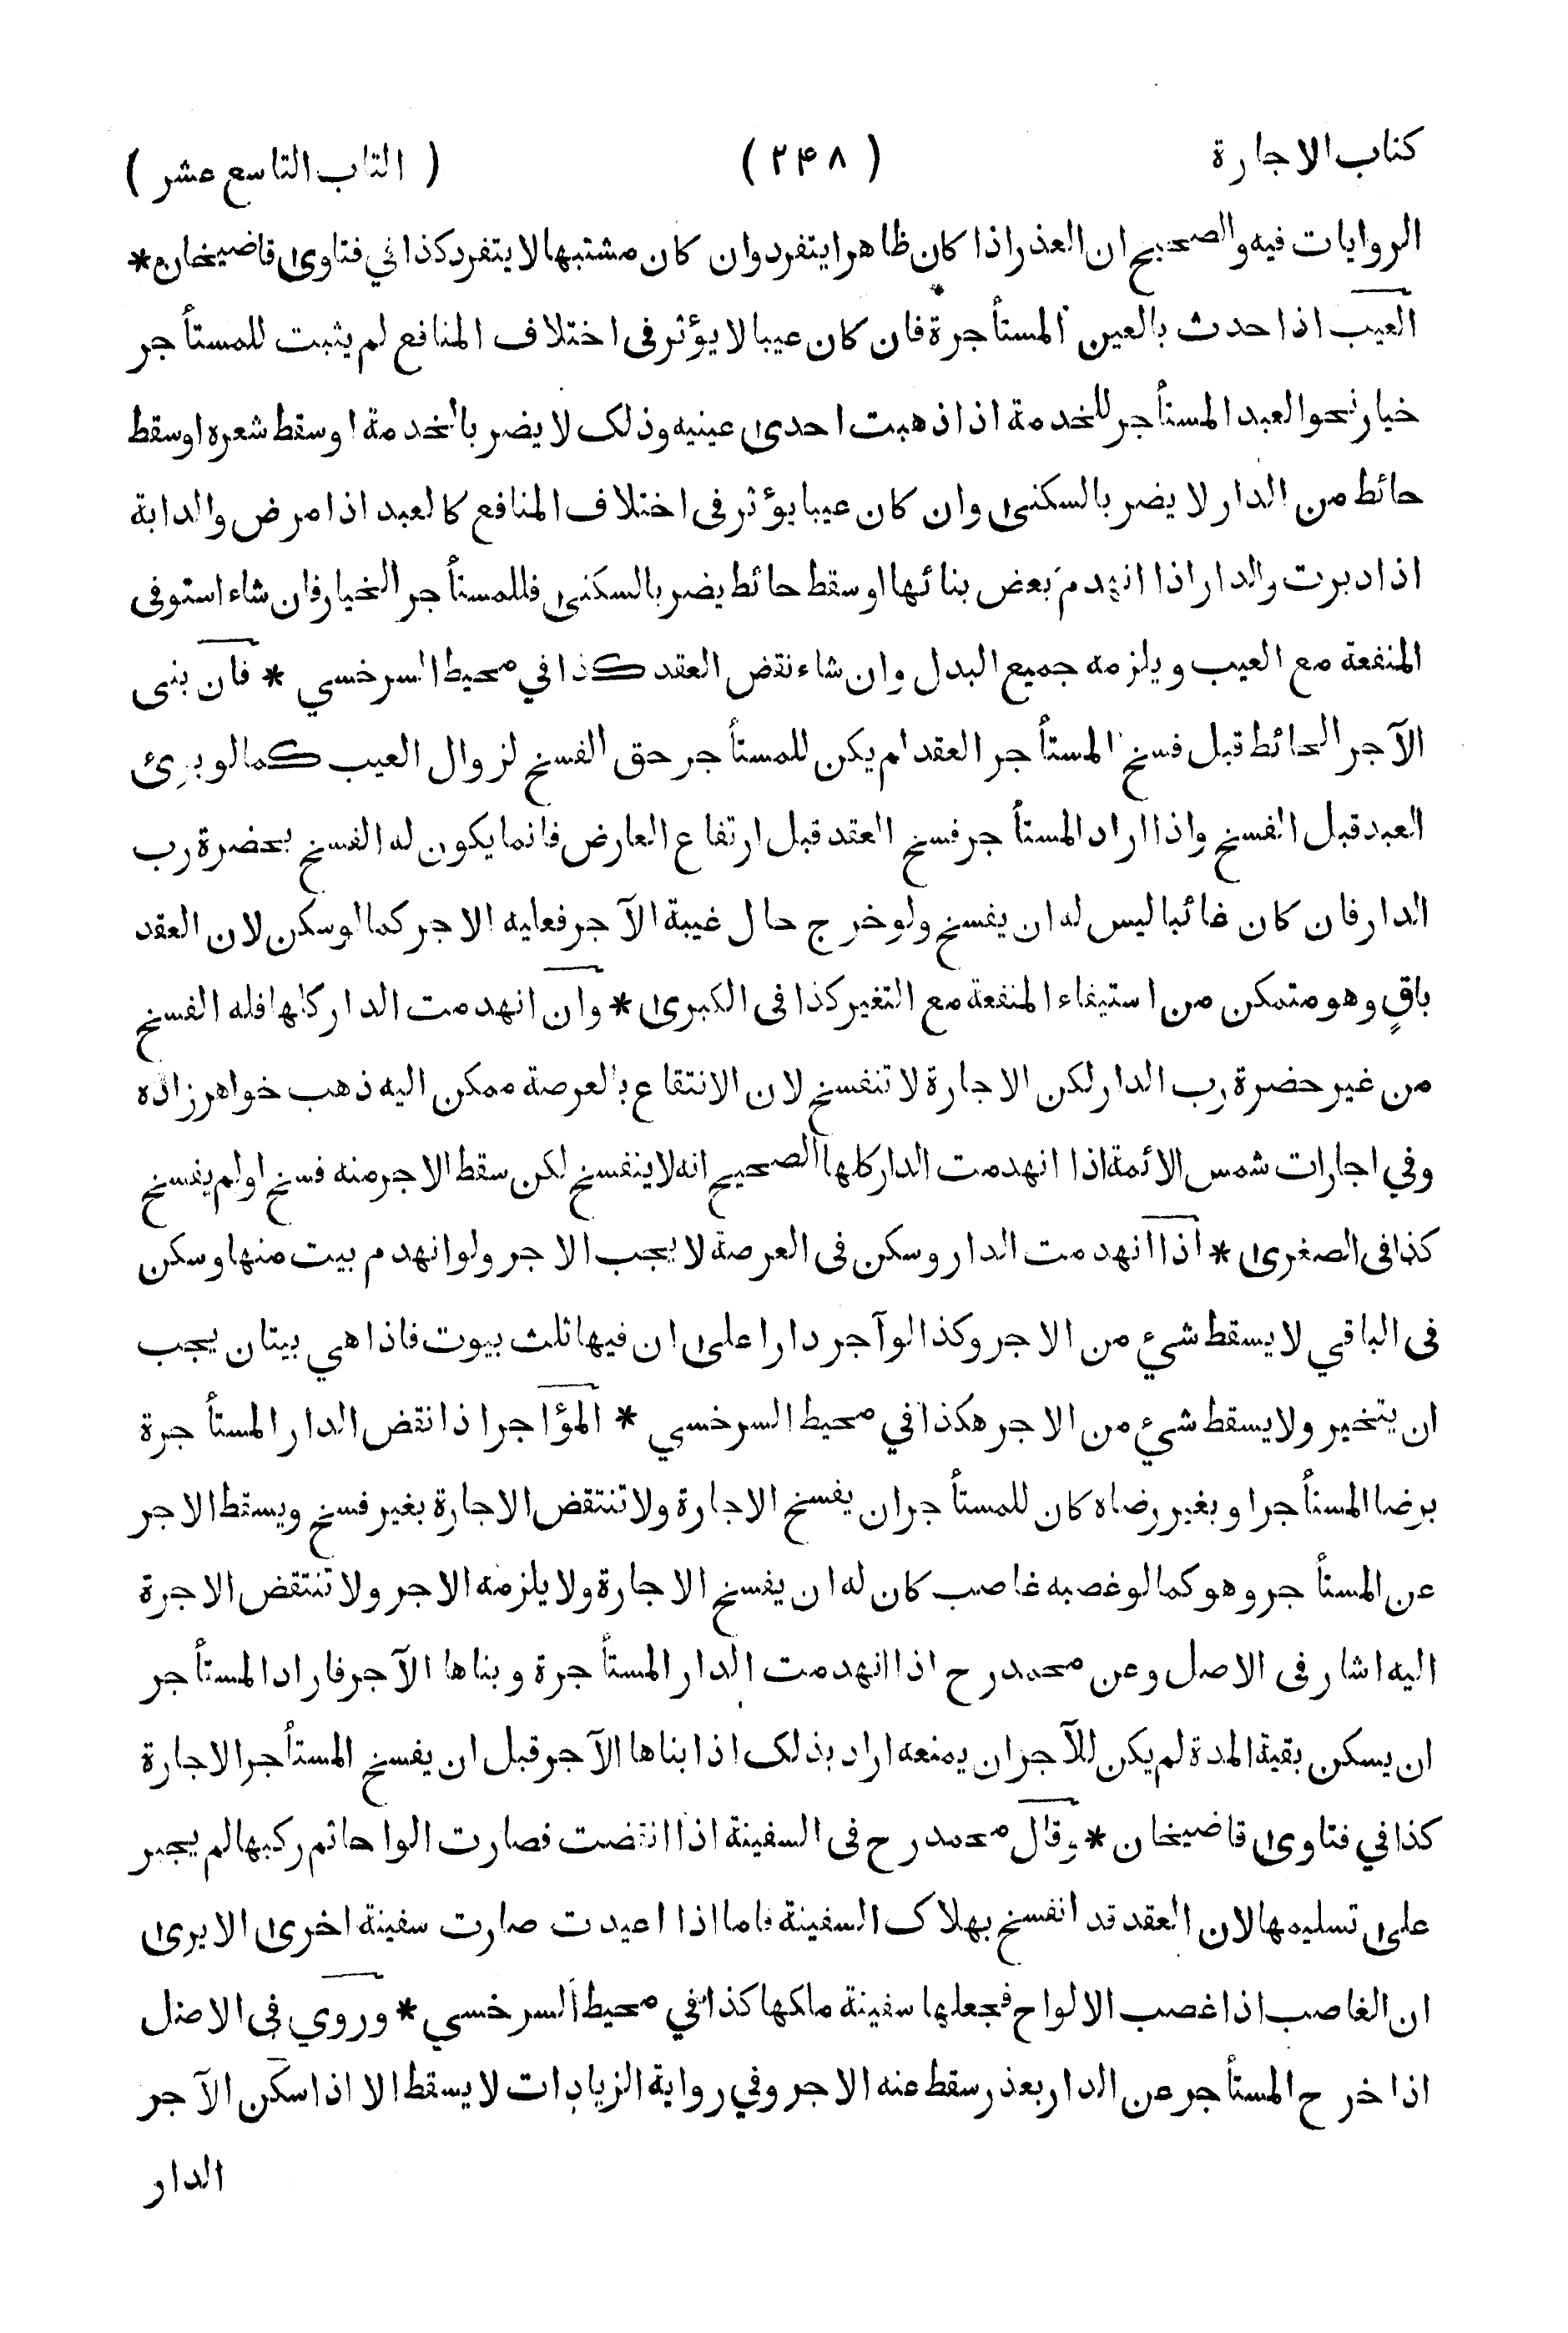 كتاب الاجارة ( ٢٤٨ ) ( الباب التاسع عشر )
الروايات فيه والصحيح ان العذر اذا كان ظاهرا يتفرد وان كان مشتبها لا يتفرد كذا في فتاوى قاضيخان *
العيب اذا حدث بالعين المستأجرة فان كان عيبا لا يؤثر فى اختلاف المنافع لم يثبت للمستأجر
خيار نحو العبد المستأجر للخدمة اذا ذهبت احدى عينيه وذلك لا يضر بالخدمة او سقط شعره او سقط
حائط من الدار لا يضر بالسكنى وان كان عيبا يؤثر فى اختلاف المنافع كالعبد اذا مرض والدابة
اذا دبرت والدار اذا انهدم بعض بنائها او سقط حائط يضر بالسكنى فللمستأجر الخيار فان شاء استوفى
المنفعة مع العيب ويلزمه جميع البدل وان شاء نقض العقد كذا في محيط السرخسي * فان بنى
الآجر الحائط قبل فسخ المستأجر العقد لم يكن للمستأجر حق الفسخ لزوال العيب كما لو برئ
العبد قبل الفسخ واذا اراد المستأجر فسخ العقد قبل ارتفاع العارض فانما يكون له الفسخ بحضرة رب
الدار فان كان غائبا ليس له ان يفسخ ولو خرج حال غيبة الآجر فعليه الاجر كما لو سكن لان العقد
باقٍ وهو متمكن من استيفاء المنفعة مع التغير كذا فى الكبرى * وان انهدمت الدار كلها فله الفسخ
من غير حضرة رب الدار لكن الاجارة لا تنفسخ لان الانتقاع بالعرصة ممكن اليه ذهب خواهرزاده
وفي اجارات شمس الائمة اذا انهدمت الدار كلها الصحيح انه لا ينفسخ لكن سقط الاجر منه فسخ او لم يفسخ
كذا فى الصغرى * اذا انهدمت الدار وسكن فى العرصة لا يجب الاجر ولو انهدم بيت منها وسكن
فى الباقي لا يسقط شيء من الاجر وكذا لو آجر دارا على ان فيها ثلث بيوت فاذا هي بيتان يجب
ان يتخير ولا يسقط شيء من الاجر هكذا في محيط السرخسي * المؤاجر اذا نقض الدار المستأجرة
برضا المستأجر او بغير رضاه كان للمستأجر ان يفسخ الاجارة ولا تنتقض الاجارة بغير فسخ ويسقط الاجر
عن المستأجر وهو كما لو غصبه غاصب كان له ان يفسخ الاجارة ولا يلزمه الاجر ولا تنتقض الاجرة
اليه اشار فى الاصل وعن محمد رح اذا انهدمت الدار المستأجرة وبناها الآجر فاراد المستأجر
ان يسكن بقية المدة لم يكن للآجر ان يمنعه اراد بذلك اذا بناها الآجر قبل ان يفسخ المستأجر الاجارة
كذا في فتاوى قاضيخان * وقال محمد رح فى السفينة اذا انقضت فصارت الواحا ثم ركبها لم يجبر
على تسليمها لان العقد قد انفسخ بهلاك السفينة فاما اذا اعيدت صارت سفينة اخرى الا يرى
ان الغاصب اذا غصب الالواح فجعلها سفينة ملكها كذا في محيط السرخسي * وروي فى الاصل
اذا خرج المستأجر عن الدار بعذر سقط عنه الاجر وفي رواية الزيادات لا يسقط الا اذا سكن الآجر
الدار